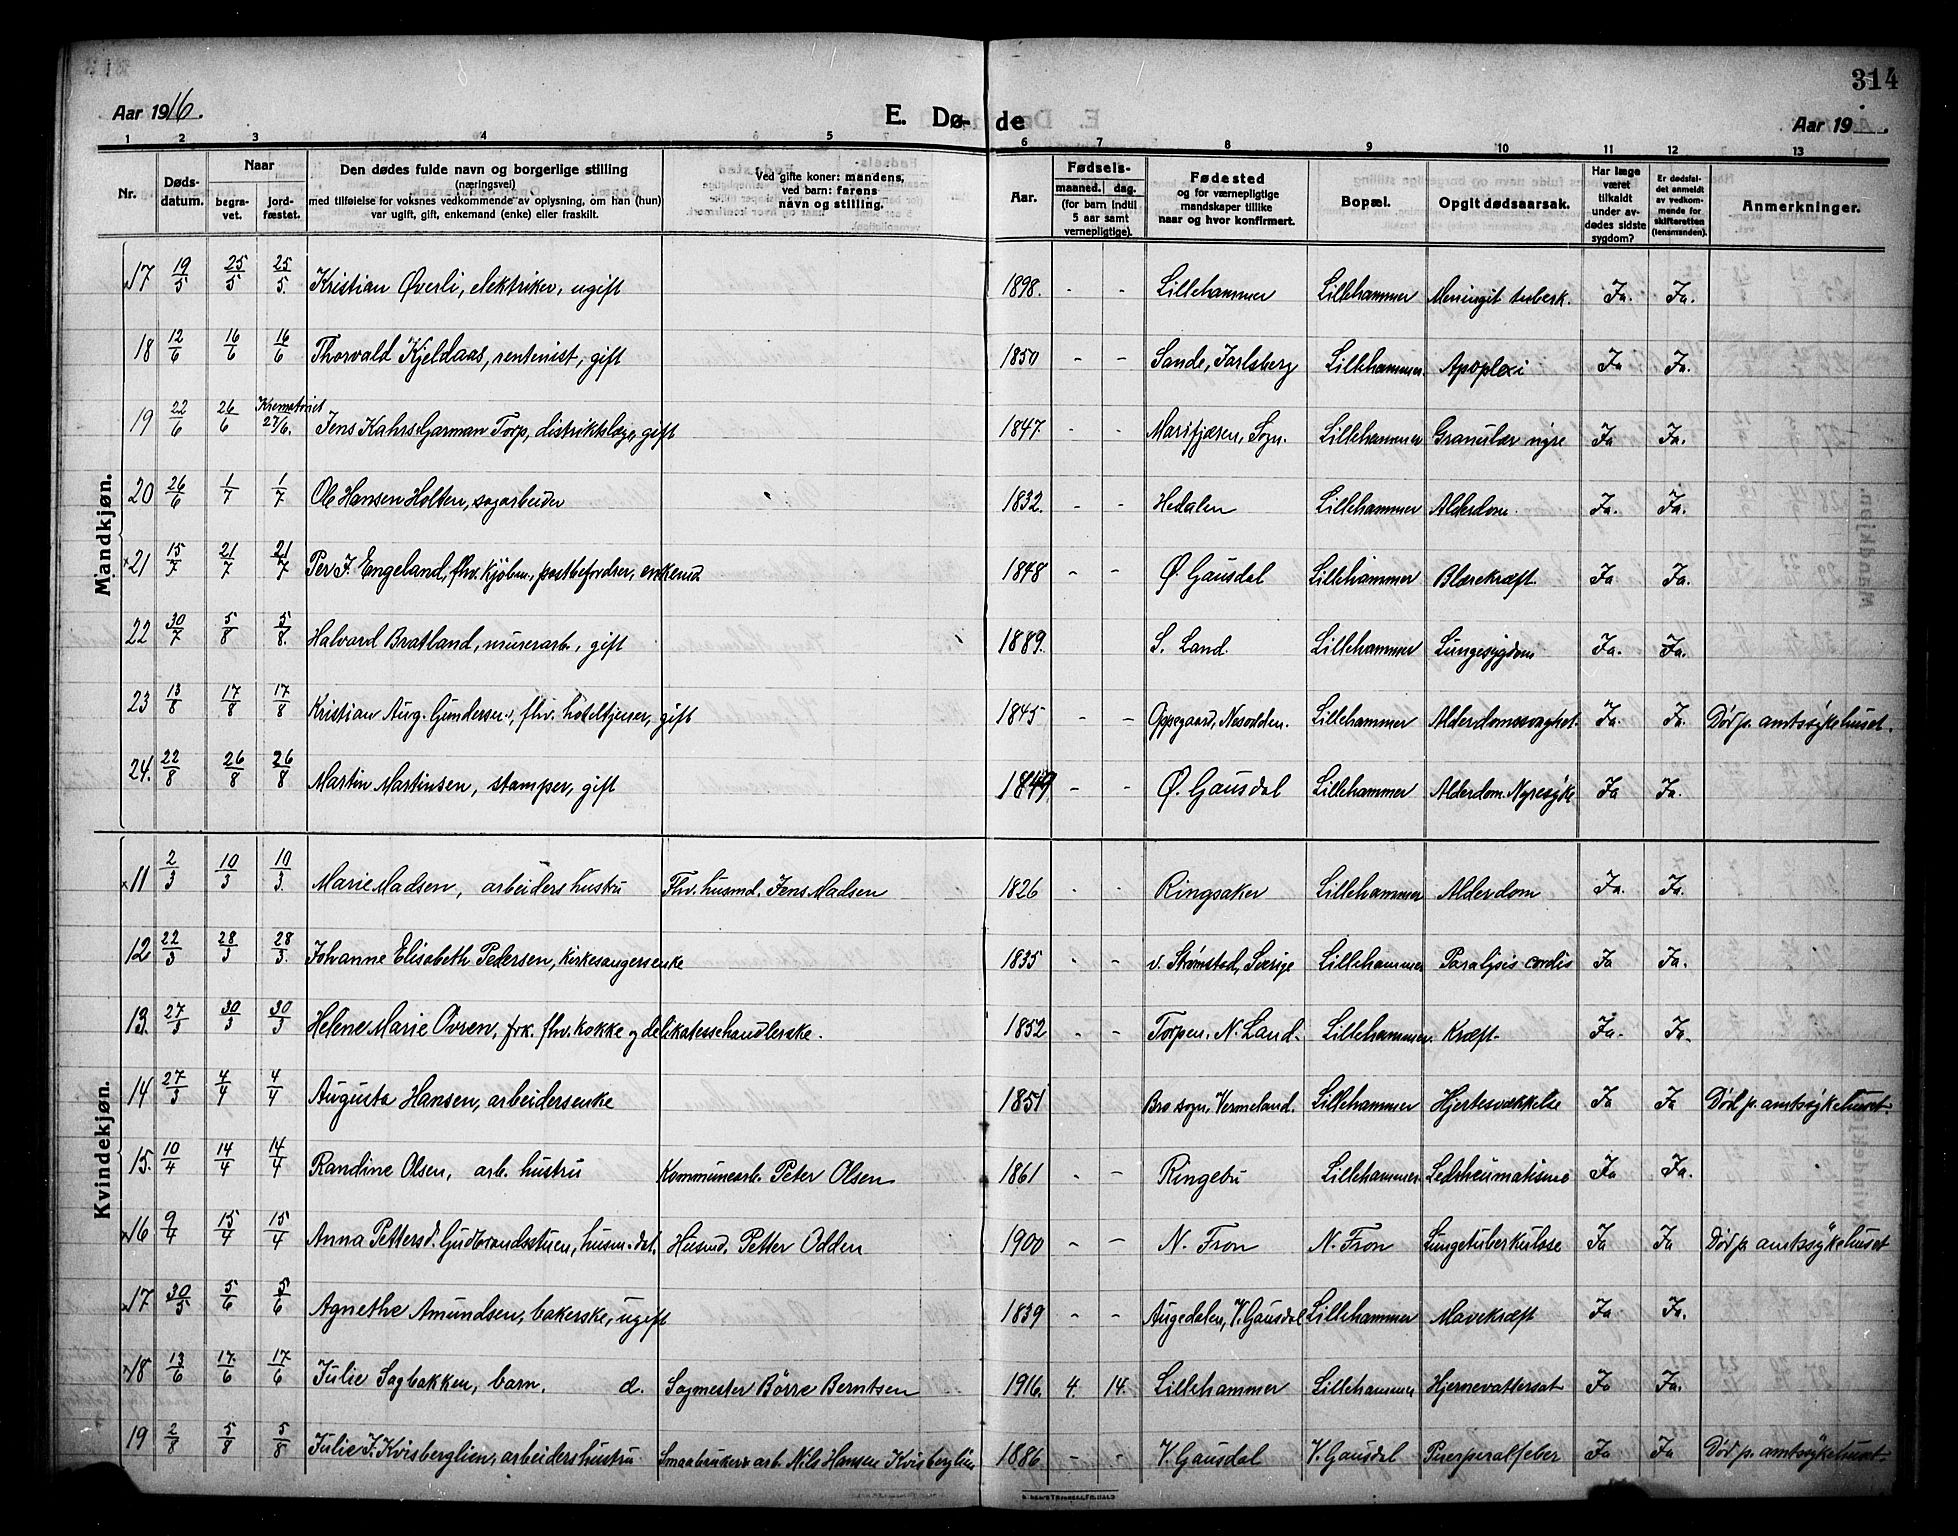 314
Aar 1916.
E. Dø-
de
Aar 19
1 2 3 4 5 6 7 8 9 10 11 12 13
Nr.
Døds-datum.
Naar
begra-vet.
jord-fæstet.
Den dødes fulde navn og borgerlige stilling
(næringsvei)
med tilføielse for voksnes vedkommende av oplysning, om han (hun)
var ugift, gift, enkemand (enke) eller fraskilt.
Ved gifte koner: mandens,
ved barn: farens
navn og stilling.
Aar.
Fødsels-
maaned. dag.
(for barn indtil
5 aar samt
vernepligtige).
Fødested
og for værnepligtige
mandskaper tillike
naar og hvor konfirmert.
Bopæl.
Opgit dødsaarsak.
Har læge
været
tilkaldt
under av-
dødes sidste
sygdom?
Er dødsfal-
det anmeldt
av vedkom-
mende for
skifteretten
(lensmanden).
Anmerkninger.
Mandkjøn.
17 19/5 25/5 25/5. Kristian Øverli, elektriker, ugift 1898. - - Lillehammer Lillehammer Meningit tuberk. Ja. Ja.
18 12/6 16/6 16/6 Thorvald Kjeldaas, rentenist, gift 1850 - - Sande, Jarlsberg Lillehammer Apoplexi Ja Ja.
19 22/6 26/6 Krematoriet 27/6. Jens Kahrs Garman Torp, distriktslæge, gift 1847. - - Marifjæren, Sogn. Lillehammer Granulær nyre Ja Ja.
20 26/6 1/7 1/7 Ole Hansen Holten, sagarbeider 1832. - - Hedalen Lillehammer Alderdom. Ja. Ja.
21 15/7 21/7 21/7 Per J. Engeland, fhv. kjøbm., postbefordrer, enkemd. 1848 - - Ø. Gausdal Lillehammer Blærekræft. Ja Ja.
22 30/7 5/8 5/8. Halvard Bratland, murerarb., gift 1889. S. Land. Lillehammer Lungesygdom Ja. Ja.
23 13/8 17/8 17/8 Kristian Aug. Gundersen, fhv. hoteltjener, gift 1845 - - Oppegaard, Nesodden. Lillehammer Alderdomssvaghet. Ja. Ja. Død p. amtssykehuset.
24. 22/8 26/8 26/8 Martin Martinsen, stamper, gift 1849 - - Ø. Gausdal Lillehammer Alderdom. Nyresyke Ja Ja.
Kvindekjøn.
11 2/3 10/3 10/3. Marie Madsen, arbeiders hustru Fhv. husmd. Jens Madsen 1826 - - Ringsaker Lillehammer Alderdom Ja. Ja.
12 22/3 28/3 28/3. Johanne Elisabeth Pedersen, kirkesangersenke 1835 - - v. Strømstad, Sverige Lillehammer Paralysis cordis Ja Ja.
13. 27/3 30/3 30/3 Helene Marie Ovren, frk. fhv. kokke og delikatessehandlerske. 1852 - - Torpen, N. Land. Lillehammer. Kræft. Ja. Ja.
14 27/3 4/4 4/4 Augusta Hansen, arbeidersenke 1851 Bro sogn, Vermeland. Lillehammer Hjertesvækkelse Ja Ja Død p. amtssykehuset
15. 10/4 14/4 14/4 Randine Olsen, arb. hustru Kommunearb. Peter Olsen 1861 - - Ringebu Lillehammer. Ledrheumatisme Ja Ja.
16 9/4 15/4 15/4 Anna Pettersd. Gudbrandsstuen, husm. dat. Husmd. Petter Odden 1900 - - N. Fron N. Fron Lungetuberkulose Ja Ja Død p. amtssykehuset
17 30/5 5/6 5/6 Agnethe Amundsen, bakerske, ugift 1839 - - Augedalen, V. Gausdal Lillehammer Mavekræft Ja Ja.
18 13/6 17/6 17/6 Julie Sagbakken, barn. d. Sagmester Börre Berntsen 1916. 4. 14. Lillehammer Lillehammer Hjernevattersot Ja Ja.
19 2/8 5/8 5/8 Julie J. Kvisberglien, arbeiders hustru Smaabruker & arb. Nils Hansen Kvisberglien 1886 - - V. Gausdal V. Gausdal Puerperalfeber Ja Ja Død p. amtssykehuset.